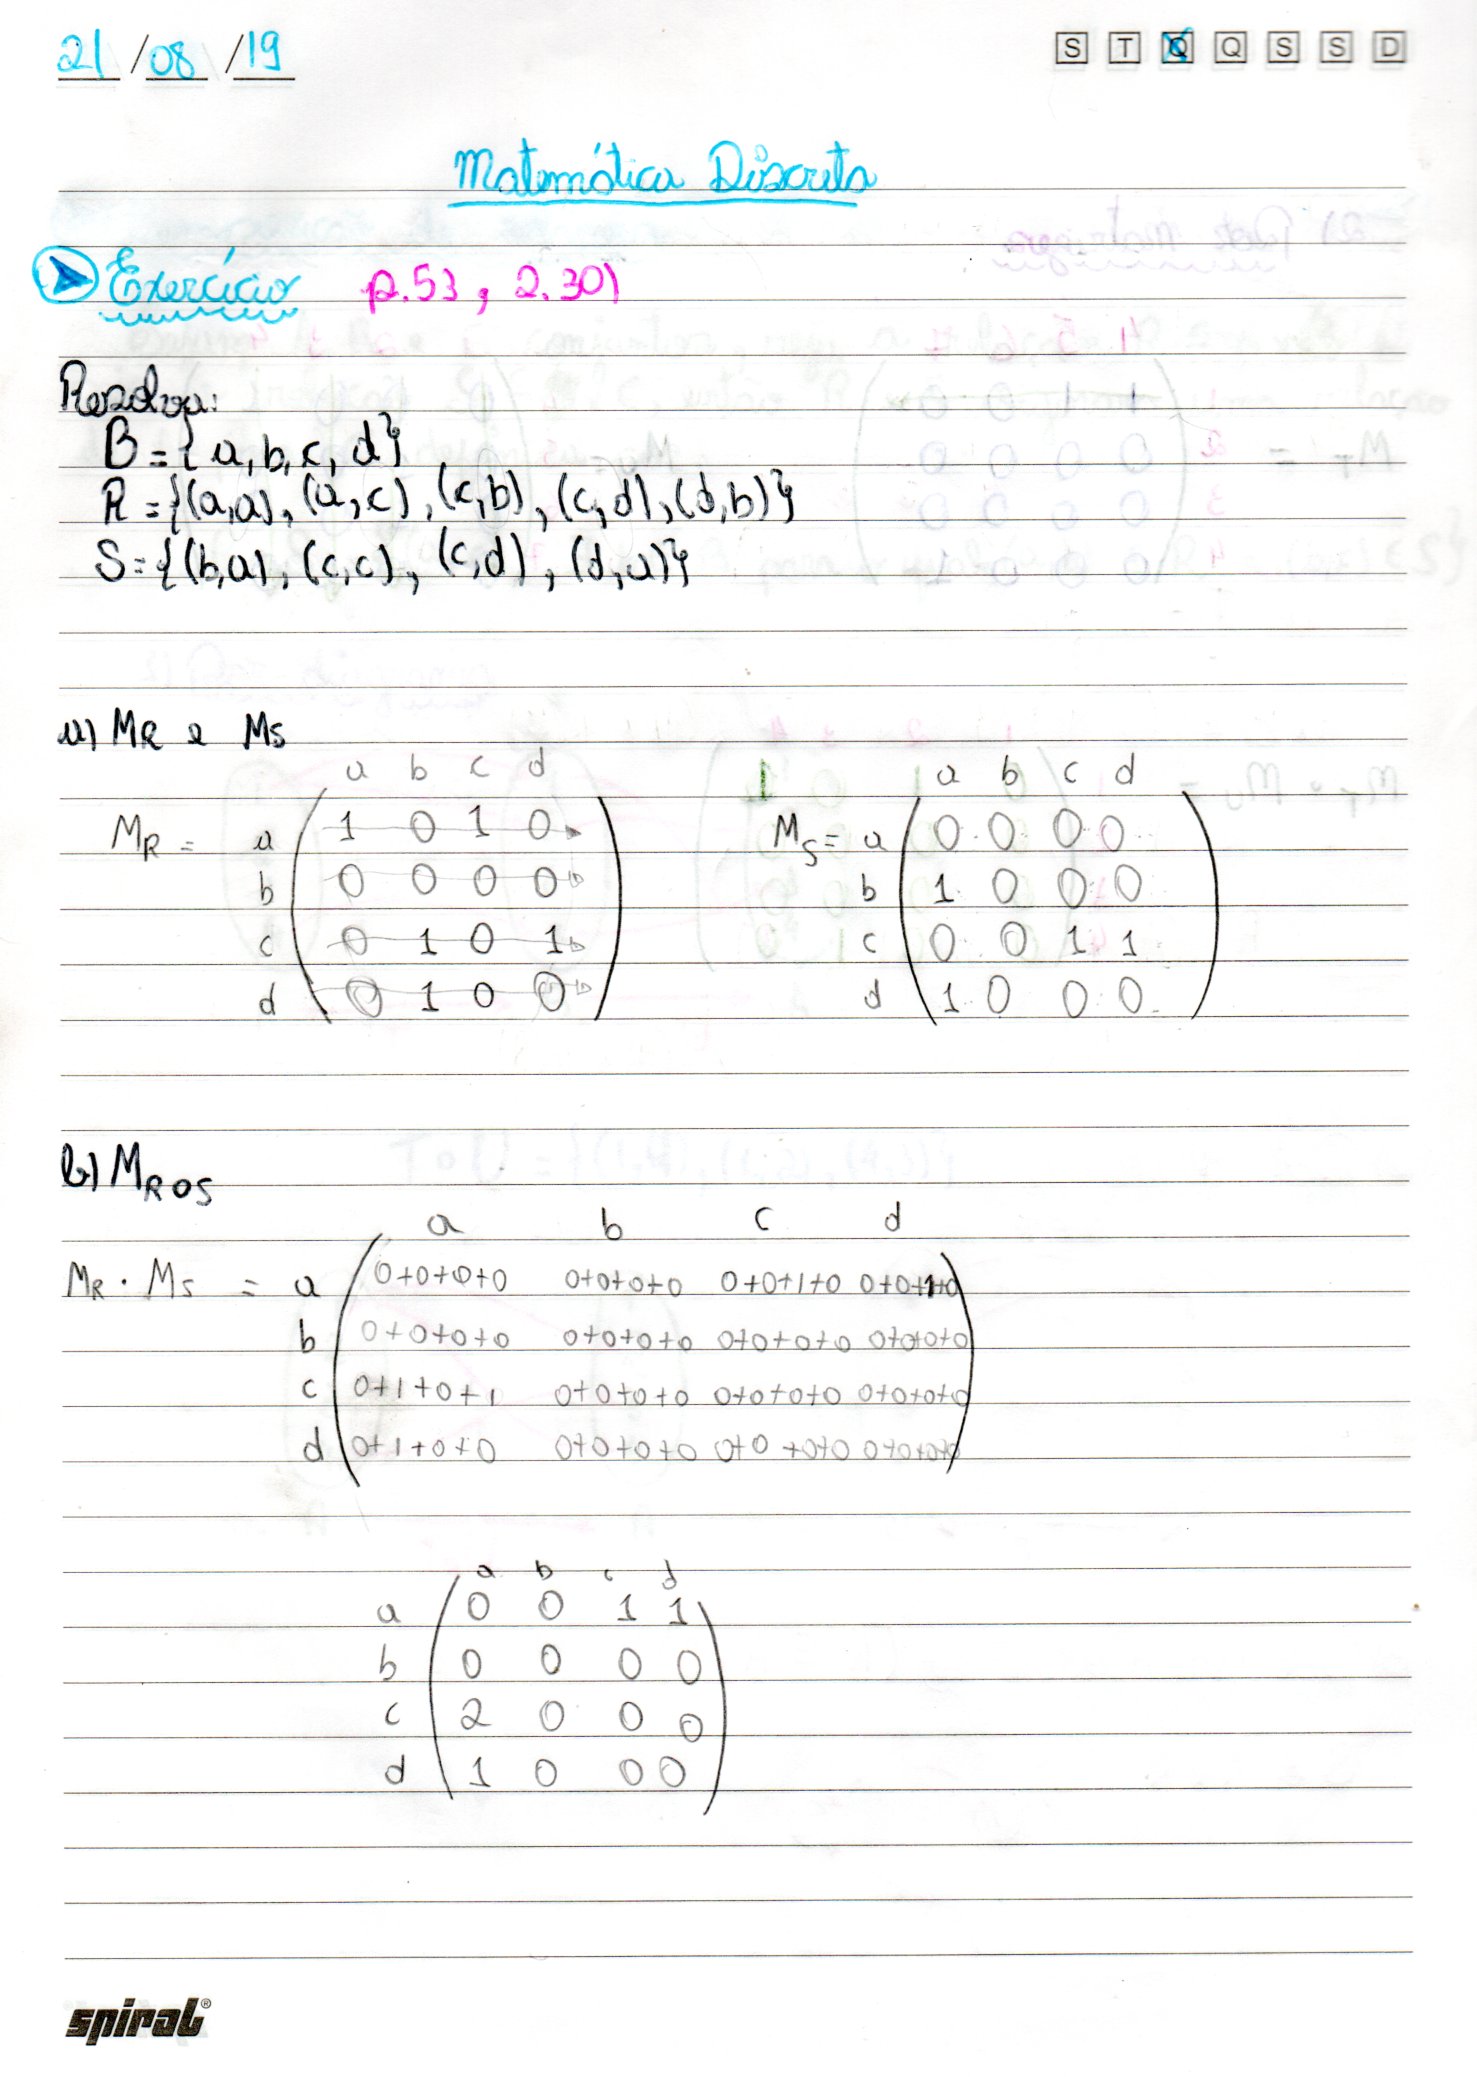 21/08/19 S T Q Q S S D
Matemática Discreta
Exercício p.53, 2.30)
Resolva:
B={a,b,c,d}
R={(a,a),(a,c),(c,b),(c,d),(d,b)}
S={(b,a),(c,c),(c,d),(d,a)}
a) MR e MS
a b c d a b c d
MR = a 1 0 1 0 MS= a 0 0 0 0
b 0 0 0 0 b 1 0 0 0
c 0 1 0 1 c 0 0 1 1
d 0 1 0 0 d 1 0 0 0
b) MROS
a b c d
MR . MS = a 0+0+0+0 0+0+0+0 0+0+1+0 0+0+1+0
b 0+0+0+0 0+0+0+0 0+0+0+0 0+0+0+0
c 0+1+0+1 0+0+0+0 0+0+0+0 0+0+0+0
d 0+1+0+0 0+0+0+0 0+0+0+0 0+0+0+0
a b c d
a 0 0 1 1
b 0 0 0 0
c 2 0 0 0
d 1 0 0 0
spiral®